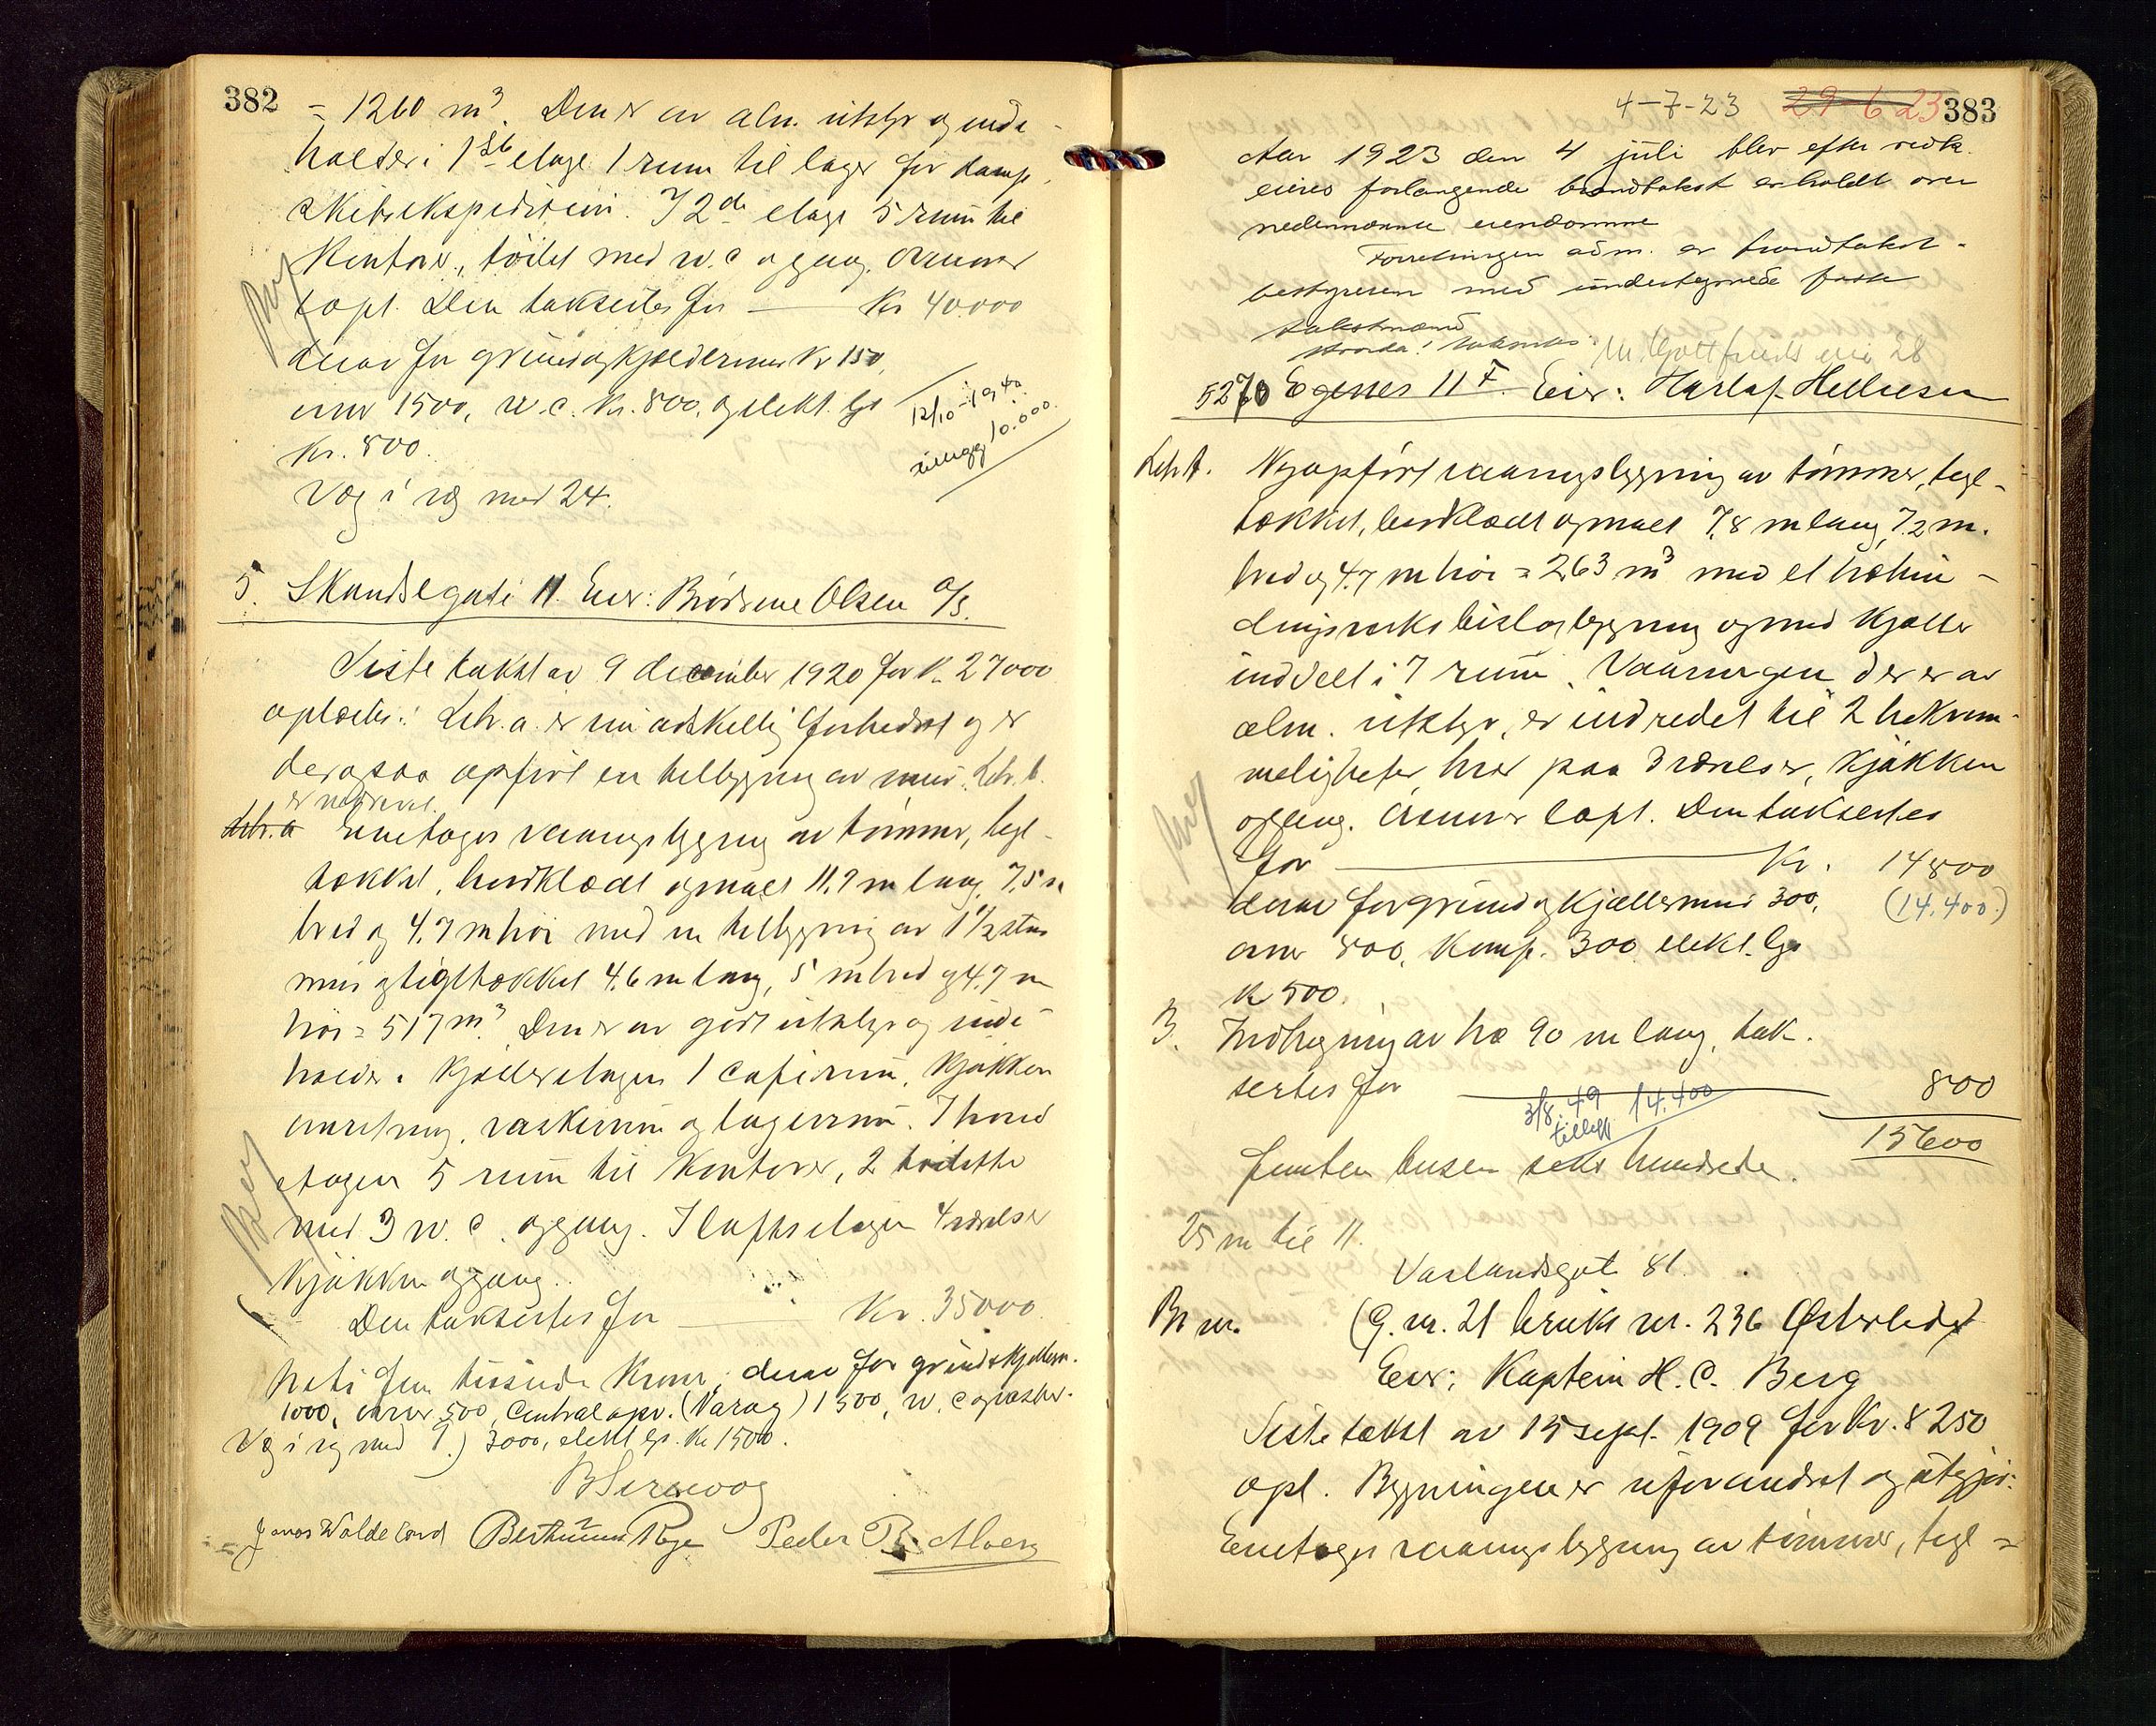 382
= 1260 m³. Den er av alm. utstyr og inde-
holder i 1ste etage 1 rum til lager for damp-
skibsekspedition. I 2de etage 5 rum til
kontorer, toilet med w.c og gang. Ovnene
kapl. Den takseites for — Kr 40.000
derav for grund og kjældermur Kr 150,
ovner 1500, w.c. kr. 800, og elekt. lys
Kr. 800.
12/10-1940
tillegg 10.000
Væg i væg med 24.
5. Skandsegate 11. Eier: Brødrene Olsen A/S.
Siste takst av 9 december 1920 for kr. 27000
oplæstes: Litr. a. er nu adskillig forbedret og er
derogsaa opført en tilbygning av mur. Litr. b.
er nedrevet.
Litr. a Enetages vaaningsbygning av tømmer, tegl-
tækket, bordklædt og maalt 11,7 m lang, 7,5 m
bred og 4,7 m høi med en tilbygning av 1½ stens
mur og tegltækket 4,6 m lang, 5 m bred og 4,7 m
høi = 517 m³. Den er av godt utstyr og inde-
holder i kjælleretagen 1 caférum, kjøkken
innretning, vaskerum og lagerrum. I hoved
etagen 5 rum til kontorer, 2 toiletter
med 3 w.c. og gang. I loftsetagen 4 værelser
kjøkken og gang.
Den takseites for — Kr. 35000.
Treti fem tusinde kroner, derav for grund & kjellerm.
1000, ovner 500, Centralopv. (Varag) 1500, w. c og vasker-
Væg i væg med 9.) 3000, elekt lys. Kr 1500.
B Serewog
Jonas Waldeland Berthinius Rege Peder R. Moen
4-7-23 29-6-23 383
Aar 1923 den 4 juli blev efter vedk.
eieres forlangende brandtakst avholdt over
nedennævnte eiendomme
Forretningen adm. av brandtakst-
bestyreren med undertegnede faste
takstmænd
5270 Egenes 11 F. Eier: Harlaf Helliesen
Litr. A. Nyopført vaaningsbygning av tømmer, tegl-
tækket, bordklædt og maalt 7,8 m lang, 7,2 m.
bred og 4,7 m høi = 263 m³ med et træbin-
dingsverks bislagbygning og med kjælder
inddelt i 7 rum. Vaaningen der er av
alm. utstyr, er indredet til 2 bekvem-
meligheter, hver paa 3 værelser, kjøkken
og gang. Ovnene kapl. Den takseites
for — Kr. 14800
derav for grund og kjællermur 300, (14.400.)
ovner 800, komf. 300, elekt. lys
kr 500.
B. Indhegning av træ 90 m lang, tak-
sertes for — 800
3/8. 49 14.400
tillegg
15600
femten tusen seks hundrede.
25 m til 11.
Vaslandsgat. 81.
Br nr. (G. nr. 21 bruks nr. 236 Østerlide)
Eier: Kaptein H. C. Berg
Siste takst av 15 sept. 1909 for Kr. 8250
opl. Bygningen er uforandret og utgjør:
Enetages vaaningsbygning av tømmer, tegl =